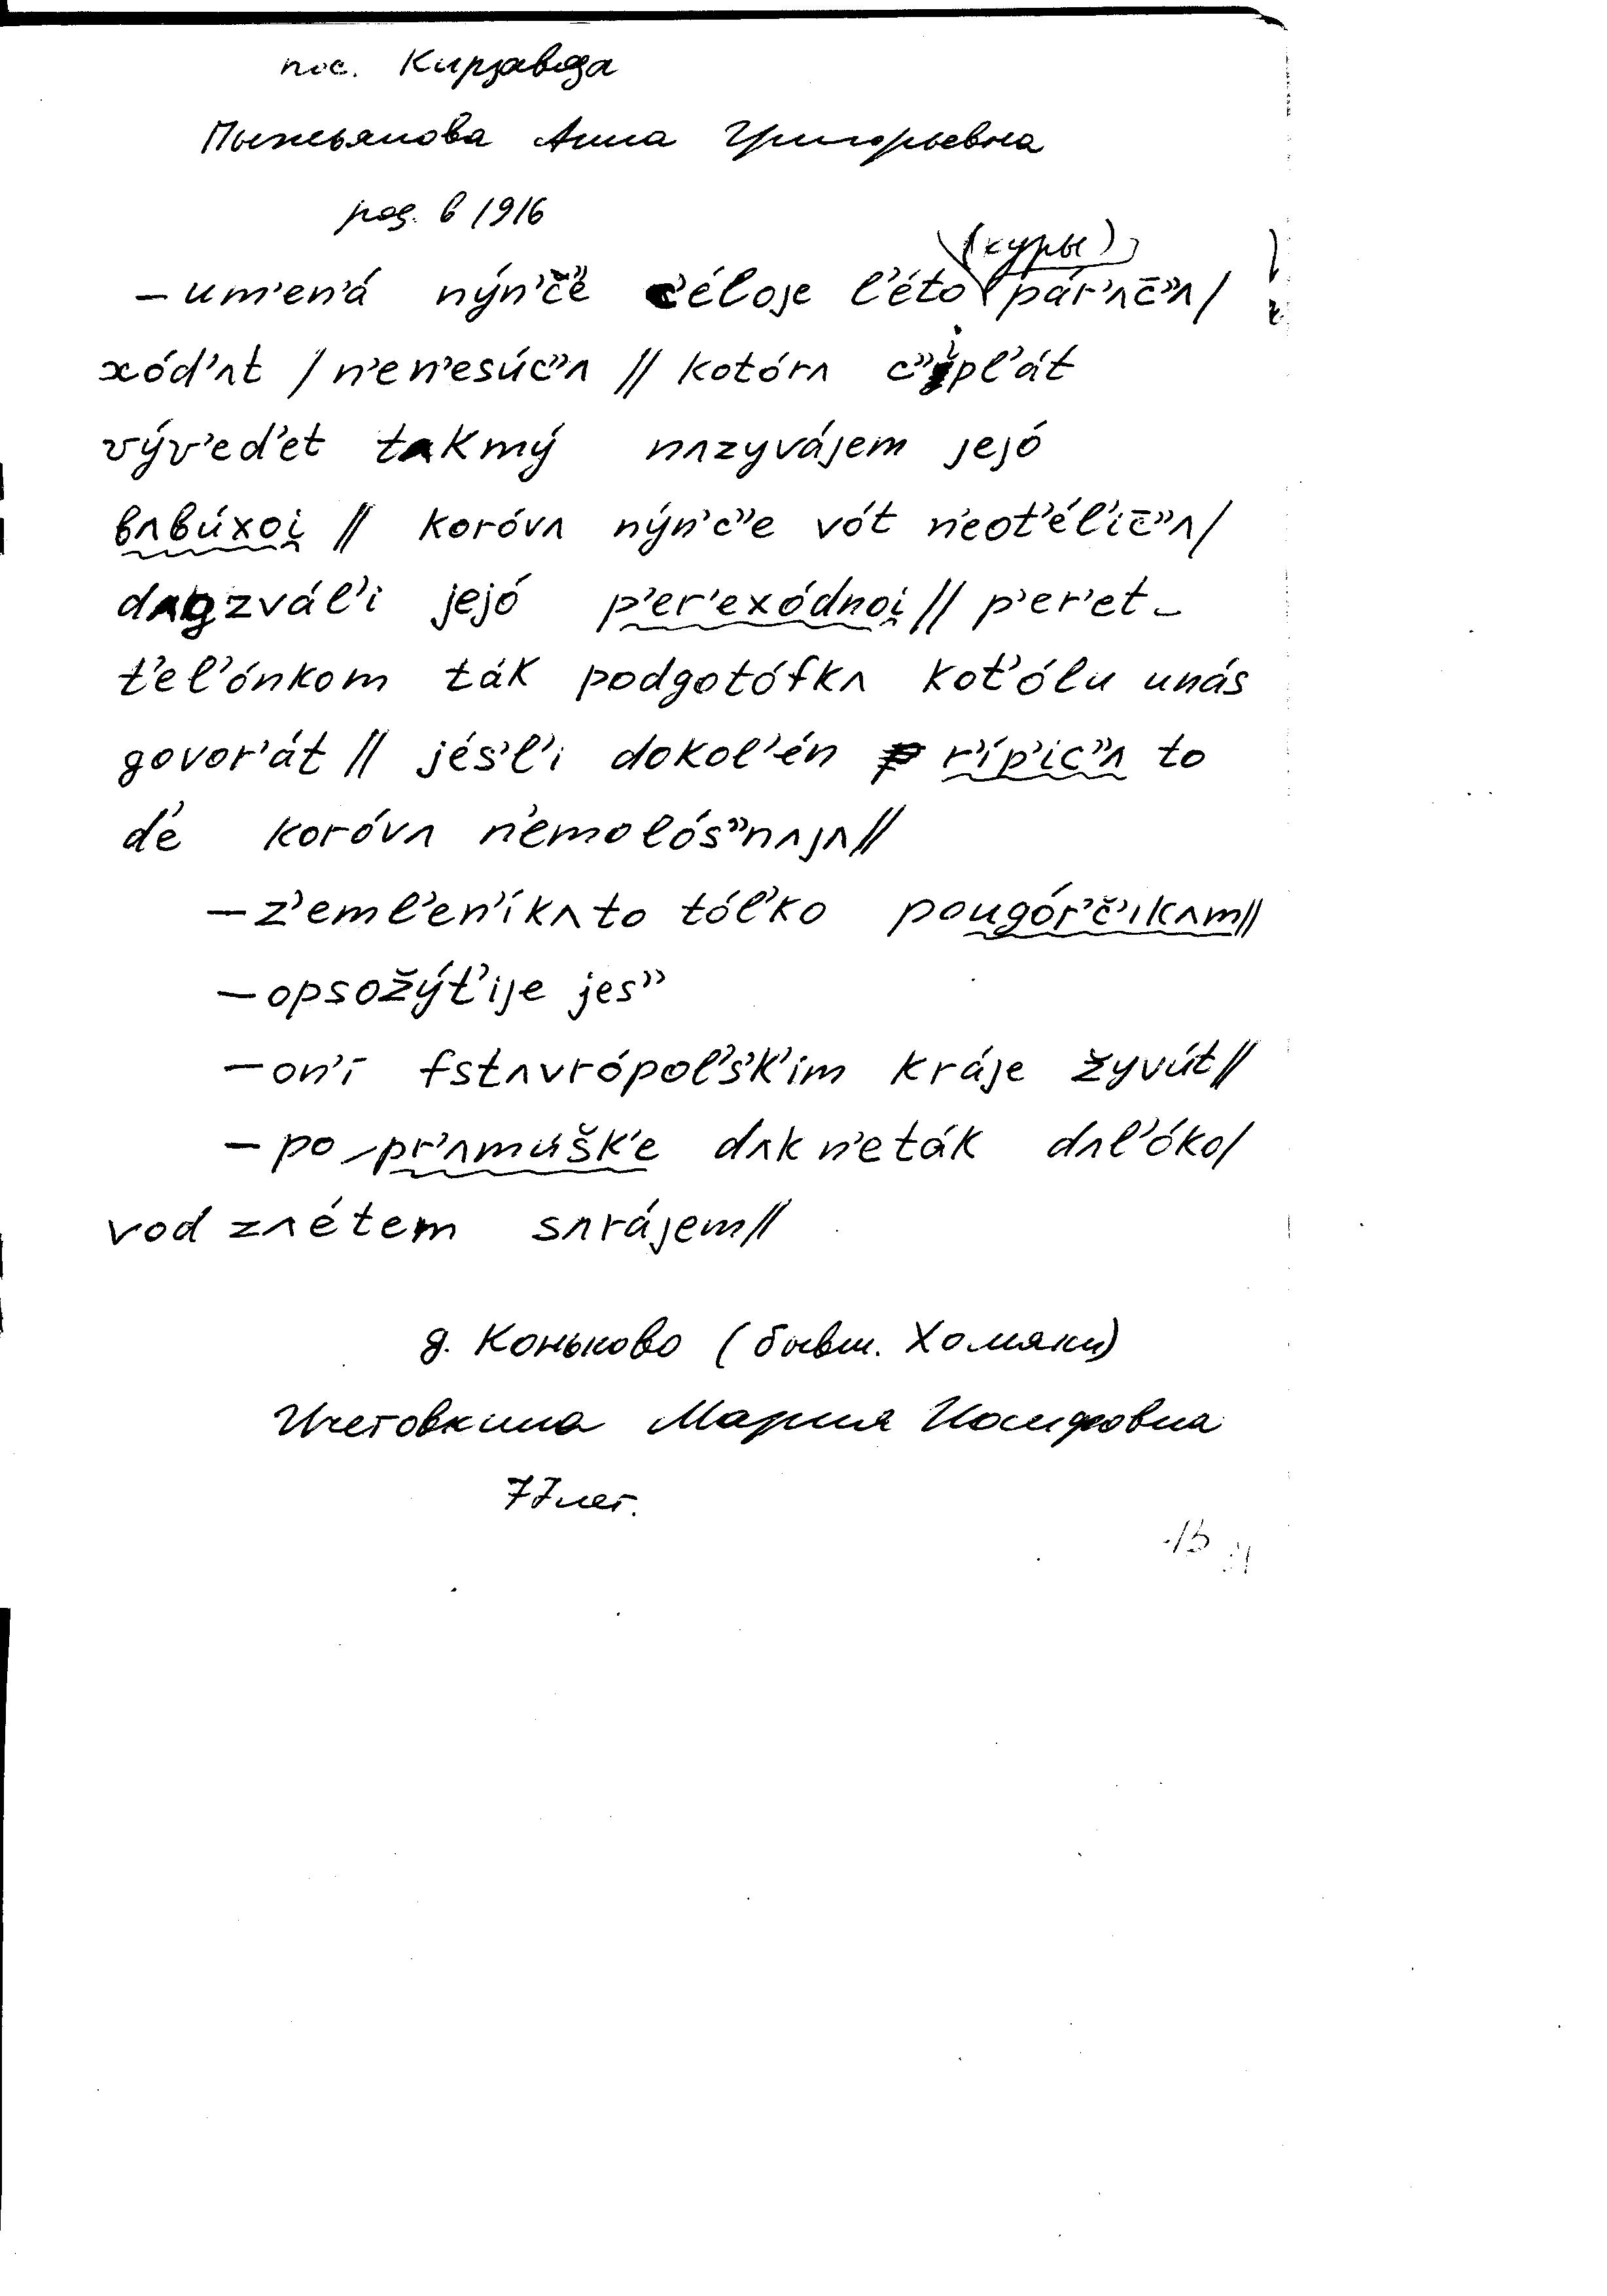 пос. Кирзавода
Пыжьянова Анна Григорьевна
род. в 1916
(куры)
— um'en'á nýn'č"e c'éloje l'éto pár'ʌc̄"ʌ/
xód'ʌt / n'en'esúc̄"ʌ // kotórʌ c"ipl'át
výv'ed'et takmý nʌzyvájem jejó
bʌbúxoi̯ // koróvʌ nýn'c"e vót n'eot'él'ic̄"ʌ/
dʌgzvál'i jejó p'er'exódnoi̯ // p'er'et-
t'el'ónkom ták podgotófkʌ kot'ólu unás
govor'át // jés'l'i dokol'én r'íp'ic"ʌ to
d'e koróvʌ n'emolós"nʌjʌ//
— z'eml'en'íkʌto tól'ko pougór'č'ikʌm//
— opsožýt'ije jes"
— on'í fstʌvrópol's'k'im kráje žyvút//
— po pr'ʌmúšk'e dʌk n'eták dʌl'óko/
vod zʌétem sʌrájem//
д. Коньково (бывш. Хомяки)
Ичетовкина Мария Иосифовна
77 лет.